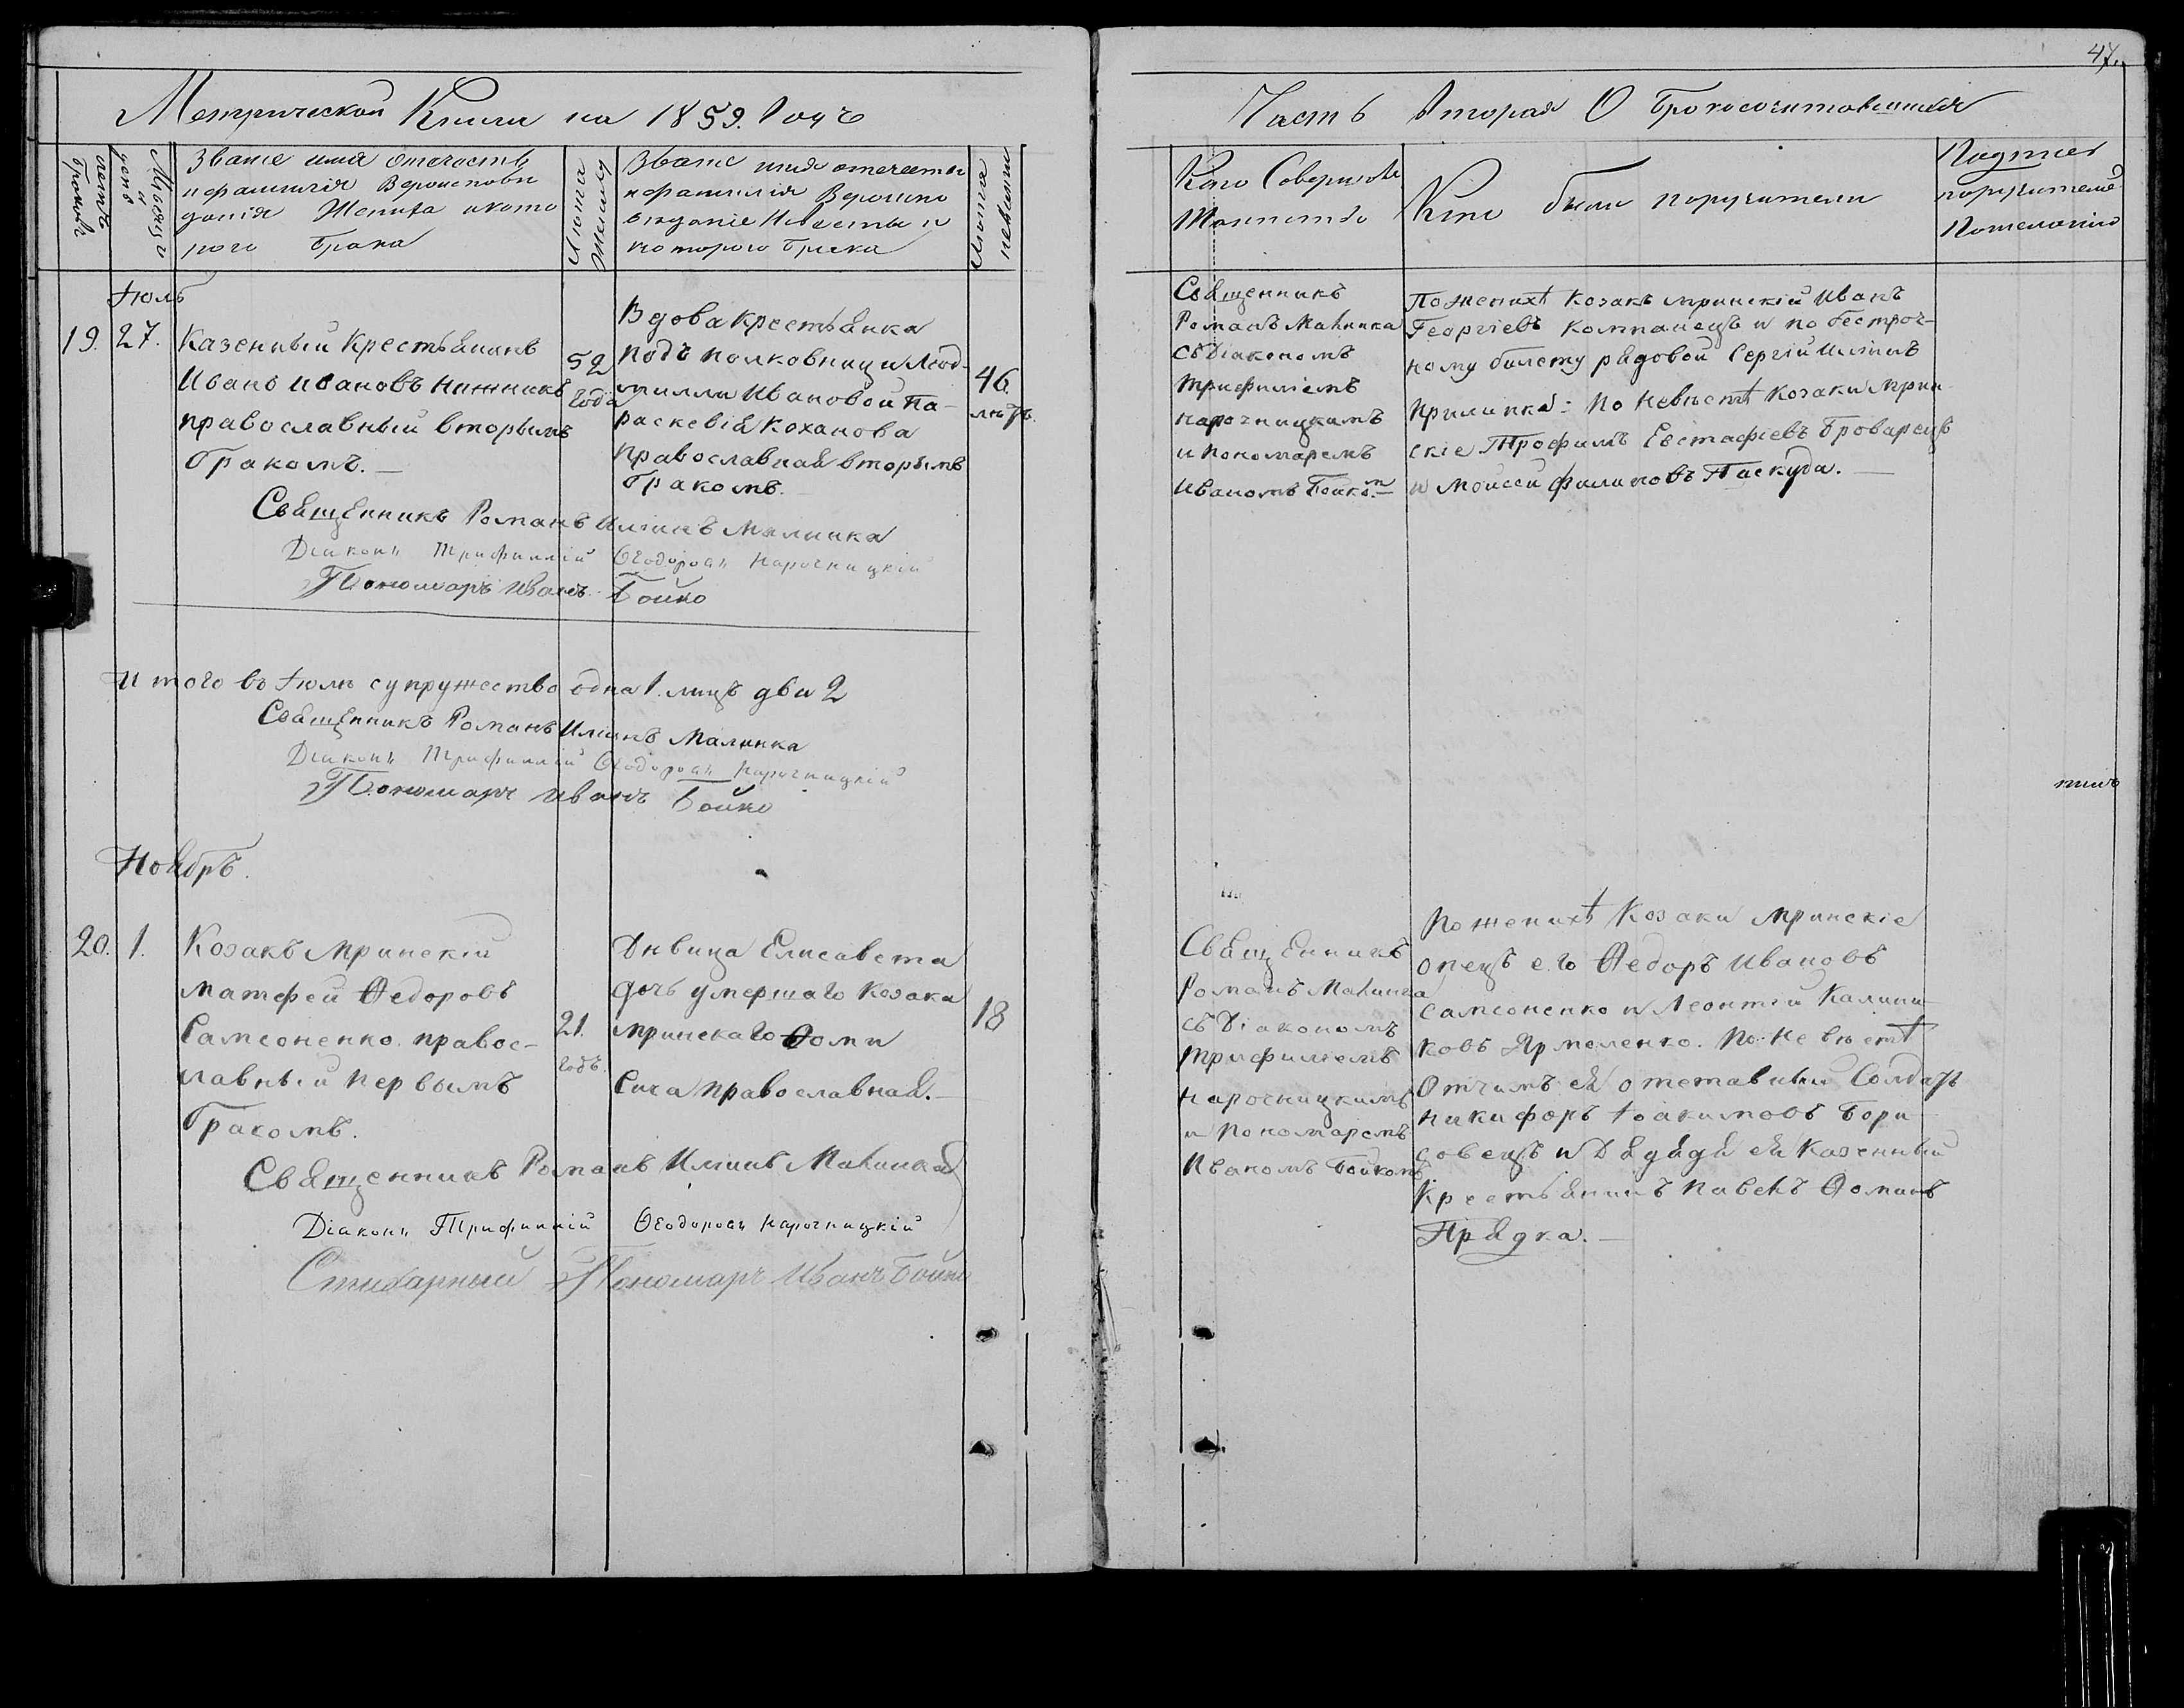 47.
Метрической Книги на 1859. Годъ
Часть Вторая О бракосочитовшихся
счетъ браковъ
Мѣсяцъ и число
Званіе имя отечество
и фамилія Вероиспове
данія Жениха и кото
рого брака
Лѣта Жениха
Званіе имя отечество
и фамилія Вероиспо
веданіе Невесты и
которого брака
Лѣта невѣсты
Кто Совершалъ
Таинство
Кто были поручители
поручителей
Іюль
19. 27.
Казенный Крестьянинъ
Иванъ Ивановъ Нижникъ
православный вторымъ
бракомъ. —
52
года
Вдова крестьянка
подъ полковницы Люд-
миллы Ивановой Па-
раскевія Коханова
Православная вторымъ
бракомъ.
46.
лѣтъ.
Священникъ
Романъ Малинка
съ Діакономъ
Трифиліемъ
Нарочницкимъ
и Пономаремъ
Иваномъ Бойкомъ
По женихѣ Козакъ Мринскій Иванъ
Георгіевъ Компанецъ и по бестроч-
ному билету рядовой Сергій Иліинъ
Прилипка: По Невѣстѣ Козаки Мрин
скіе Трофимъ Евстафіевъ Броварецъ
и Моисей Филиповъ Паскуда. —
Священникъ Романъ Иліинъ Малинка
Діаконъ Трифиллій Ѳеодоровъ Нарочницкій
Пономаръ Иванъ Бойко
И того въ Іюлѣ супружество одна 1. лицъ два 2
Священникъ Романъ Иліинъ Малинка
Діаконъ Трифиллій Ѳеодоровъ Нарочницкій
Пономаръ Иванъ Бойко
Ноябрь.
20. 1.
Козакъ Мринскій
Матфей Ѳедоровъ
Самсоненко. правос-
лавный первымъ
бракомъ.
21.
годъ.
Дѣвица Елисавета
дочь умершаго Козака
Мринскаго Ѳомы
Сича православная. —
18
Священникъ
Романъ Малинка
съ Діакономъ
Трифиліемъ
Нарочницкимъ
и Пономаремъ
Иваномъ Бойкомъ
По женихѣ Козаки Мринскіе
отецъ его Ѳедоръ Ивановъ
Самсоненко и Леонтій Калини-
ковъ Ярмоленко. По Невѣстѣ
Отчимъ ея отставный Солдатъ
Никифоръ Іоакимовъ Бори
совецъ и Дядядя ея Казенный
Крестьянинъ Павелъ Ѳоминъ
Прядка. —
Священникъ Романъ Иліинъ Малинка
Діаконъ Трифиллій Ѳеодоровъ Нарочницкій
Стихарный Пономаръ Иванъ Бойко